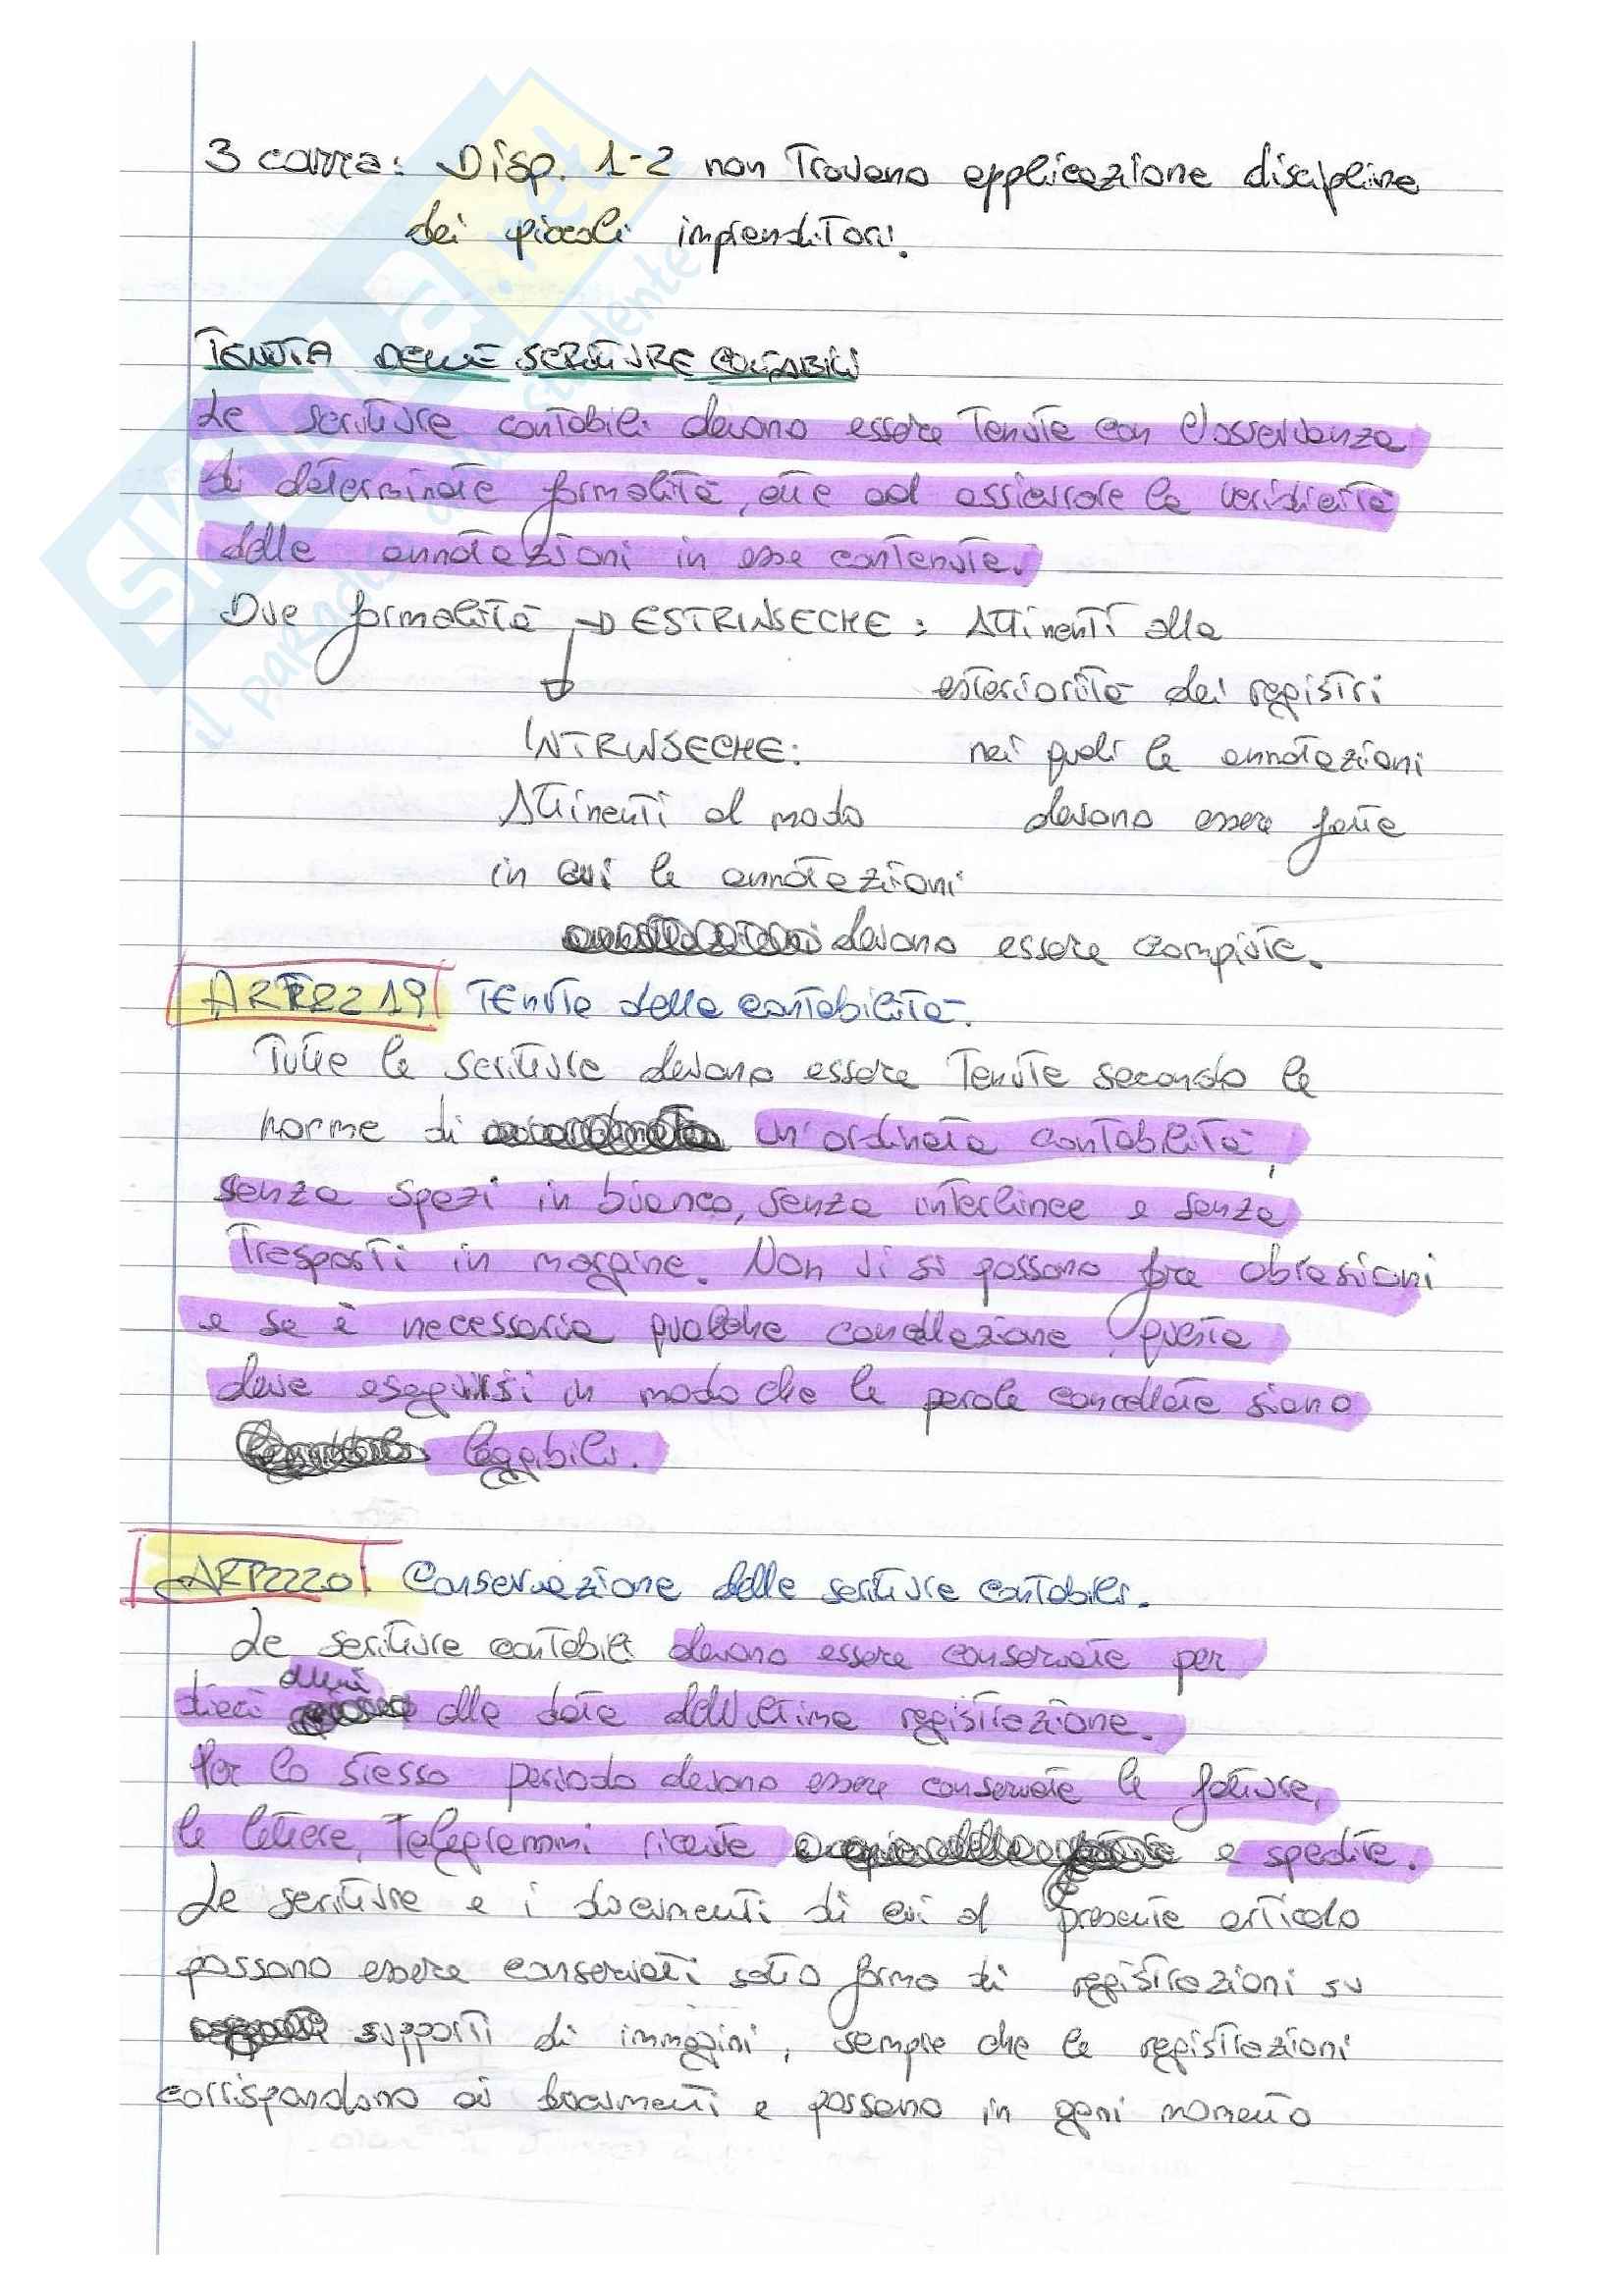 3 comma: Disp. 1-2 non Trovano applicazione discipline
dei piccoli imprenditori.
TENUTA DELLE SCRITTURE CONTABILI
Le scritture contabili devono essere Tenute con l'osservanza
di determinate formalità, atte ad assicurare la veridicità
delle annotazioni in esse contenute.
Due formalità → ESTRINSECHE: Attinenti alla
esteriorità dei registri
INTRINSECHE: nei quali le annotazioni
Attinenti al modo devono essere fatte
in cui le annotazioni
devono essere compiute.
ART 2219 Tenuta della contabilità.
Tutte le scritture devono essere Tenute secondo le
norme di un'ordinata contabilità,
senza spazi in bianco, senza interlinee e senza
Trasporti in margine. Non vi si possono fare abrasioni
e se è necessaria qualche cancellazione, questa
deve eseguirsi in modo che le parole cancellate siano
leggibili.
ART2220. Conservazione delle scritture contabili.
Le scritture contabili devono essere conservate per
dieci anni alla data dell'ultima registrazione.
Per lo stesso periodo devono essere conservate le fatture,
le lettere, Telegrammi ricevute e spedite.
Le scritture e i documenti di cui al presente articolo
possono essere conservati sotto forma di registrazioni su
supporti di immagini, sempre che le registrazioni
corrispondano ai documenti e possono in ogni momento
SKUOLA.net
il paradiso dello studente